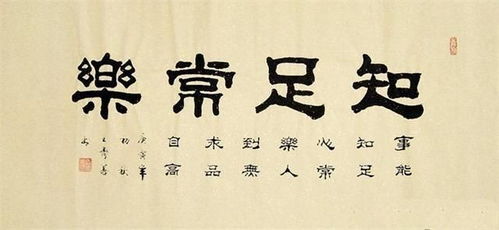 知足常樂
事能
知足
心常
樂人
到無
求品
自高
庚寅年